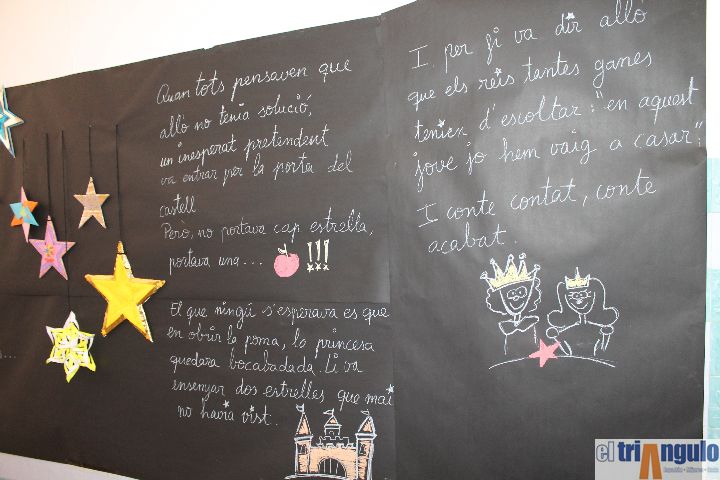 Quan tots pensaven que
allò no tenia solució,
un inesperat pretendent
va entrar per la porta del
castell
Però, no portava cap estrella,
portava una... !!!
El que ningú s'esperava es que
en obrir la poma, la princesa
quedara bocabadada. Li va
ensenyar dos estrelles que mai
no havia vist.
I per fi va dir allò
que els reis tantes ganes
tenien d'escoltar: "en aquest
jove jo hem vaig a casar".
I conte contat, conte
acabat.
el triangulo